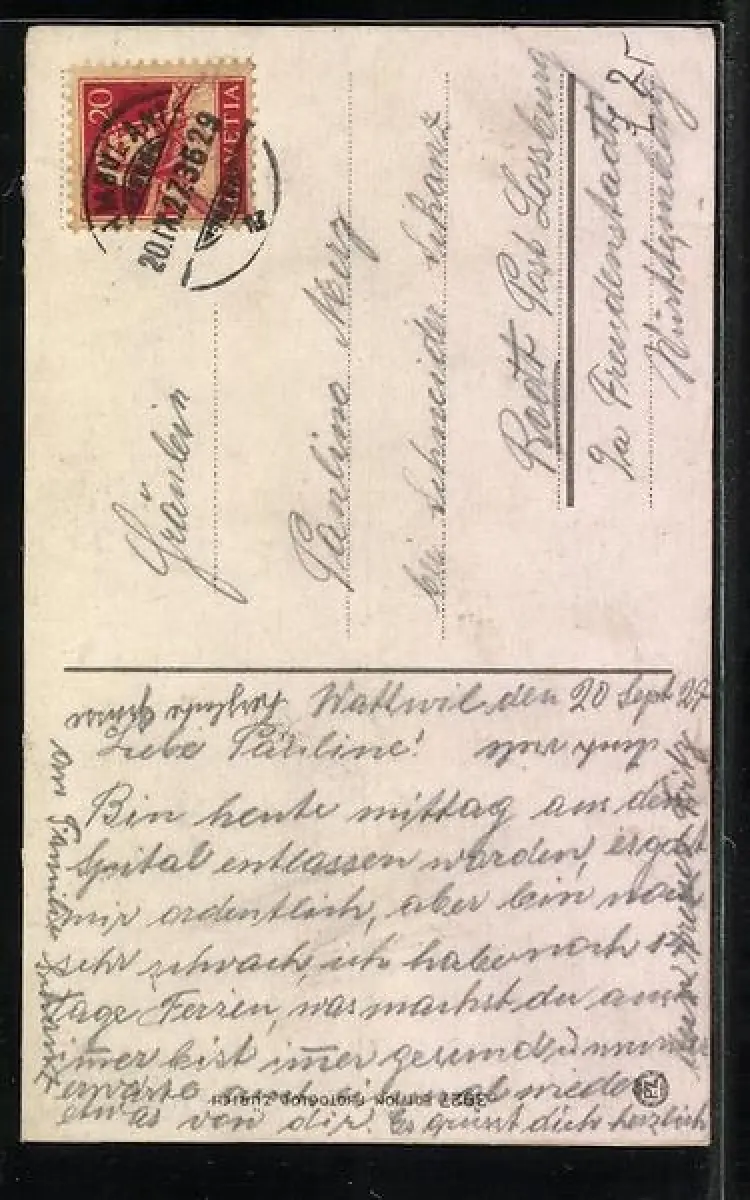 20
HELVETIA
20.IX.27.
Fräulein
Pauline Merz
bei Schneider Schanz
Rodt Post Lossburg
In Freudenstadt
Württemberg
Wattwil den 20 Sept 27
Liebe Pauline!
Bin heute mittag aus dem
Spital entlassen worden, es geht
mir ordentlich, aber bin noch
sehr schwach, ich habe noch
tage Ferien, was machst du auch
immer bist immer gesund u munter
erwarte auch einmal wieder
etwas von dir. Es grüsst dich herzlich
3927 EDITION PHOTOGLOB ZÜRICH